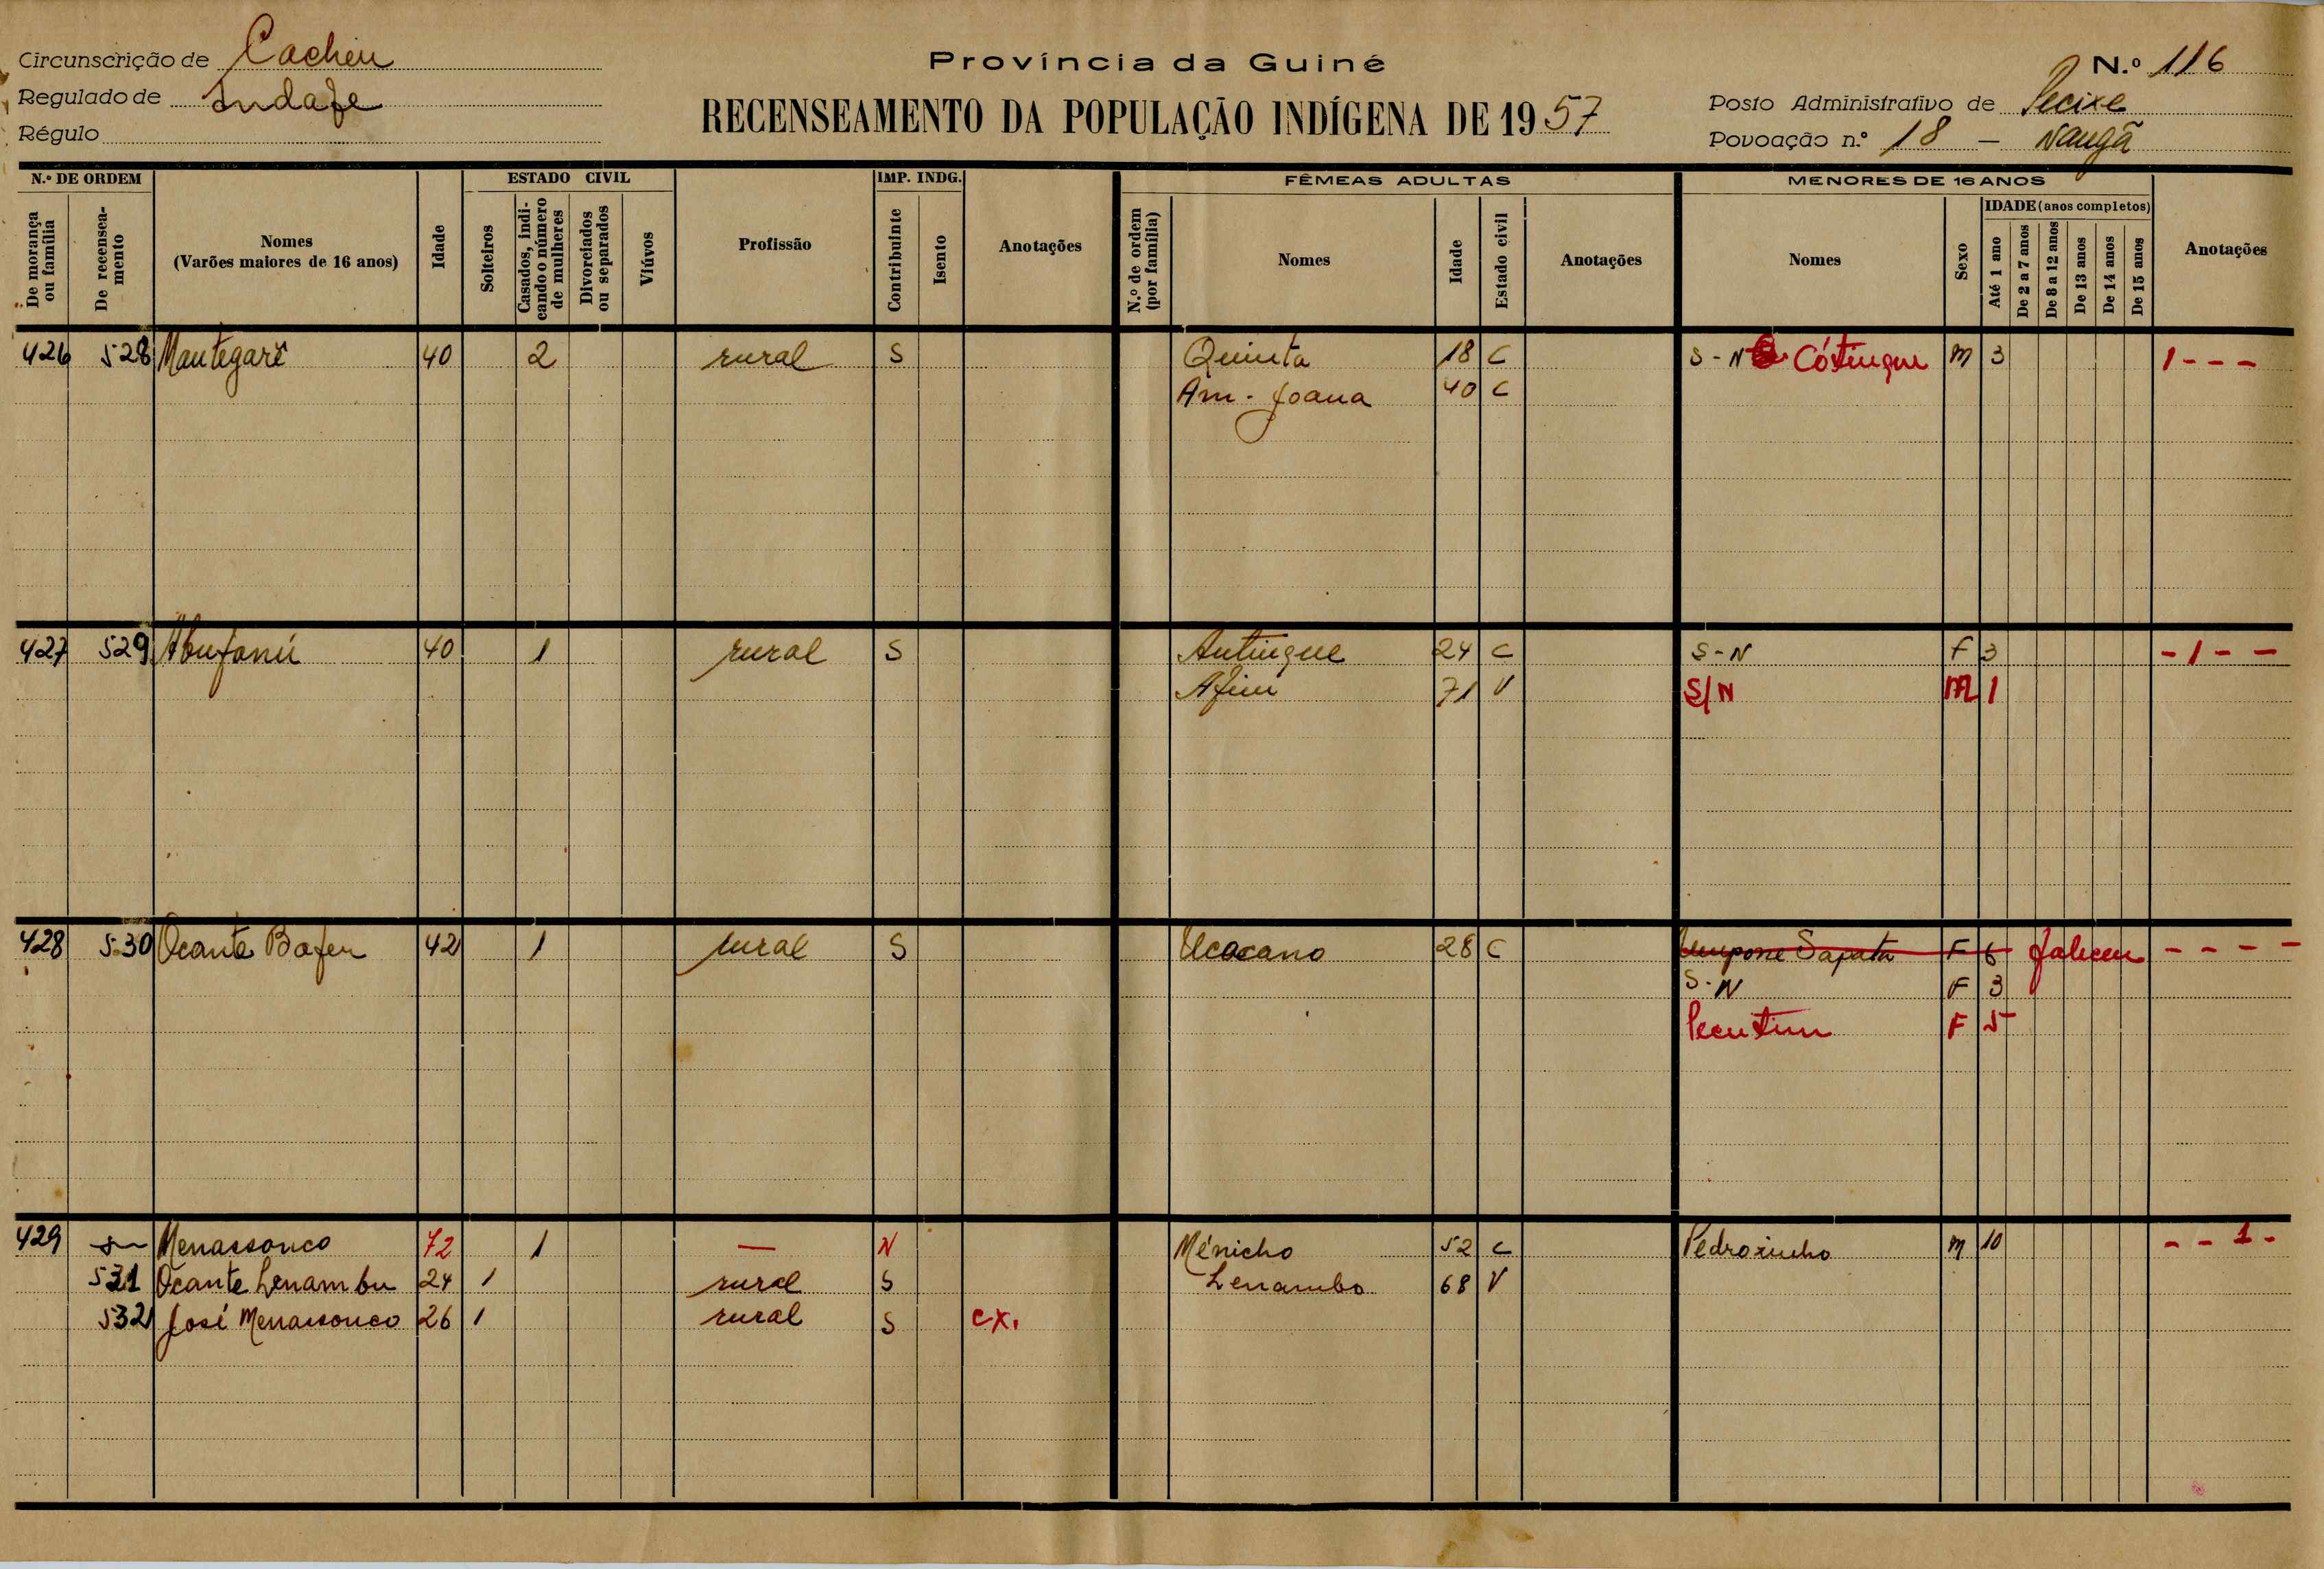 Circunscrição de Cacheu
Regulado de Indafe
Régulo
Província da Guiné
RECENSEAMENTO DA POPULAÇÃO INDÍGENA DE 1957
N.º 116
Posto Administrativo de Pecixe
Povoação n.º 18 — Nangã
N.º DE ORDEM
De morança ou família
De recenseamento
Nomes
(Varões maiores de 16 anos)
Idade
ESTADO CIVIL
Solteiros
Casados, indicando o número de mulheres
Divorciados ou separados
Viúvos
Profissão
IMP. INDG.
Contribuinte
Isento
Anotações
FÊMEAS ADULTAS
N.º de ordem (por família)
Nomes
Idade
Estado civil
Anotações
MENORES DE 16 ANOS
Nomes
Sexo
IDADE (anos completos)
Até 1 ano
De 2 a 7 anos
De 8 a 12 anos
De 13 anos
De 14 anos
De 15 anos
Anotações
426 528 Mantegarê 40 2 rural S Quinta 18 C S-N Cótingue M 3 1 - - -
Am. Joana 40 C
427 529 Abufonú 40 1 rural S Antingue 24 C S-N F 3 - 1 - -
Afini 71 V S/N M 1
428 530 Ocante Bofen 42 1 rural S Ucacano 28 C Sapata F 6 faleceu - - - -
S-N F 3
Pecutim F 5
429 Menassonco 72 1 — N Ménicho 52 C Pedrozinho M 10 - - 1 -
531 Ocante Lenambu 24 1 rural S Lenambo 68 V
532 José Menassonco 26 1 rural S cx.